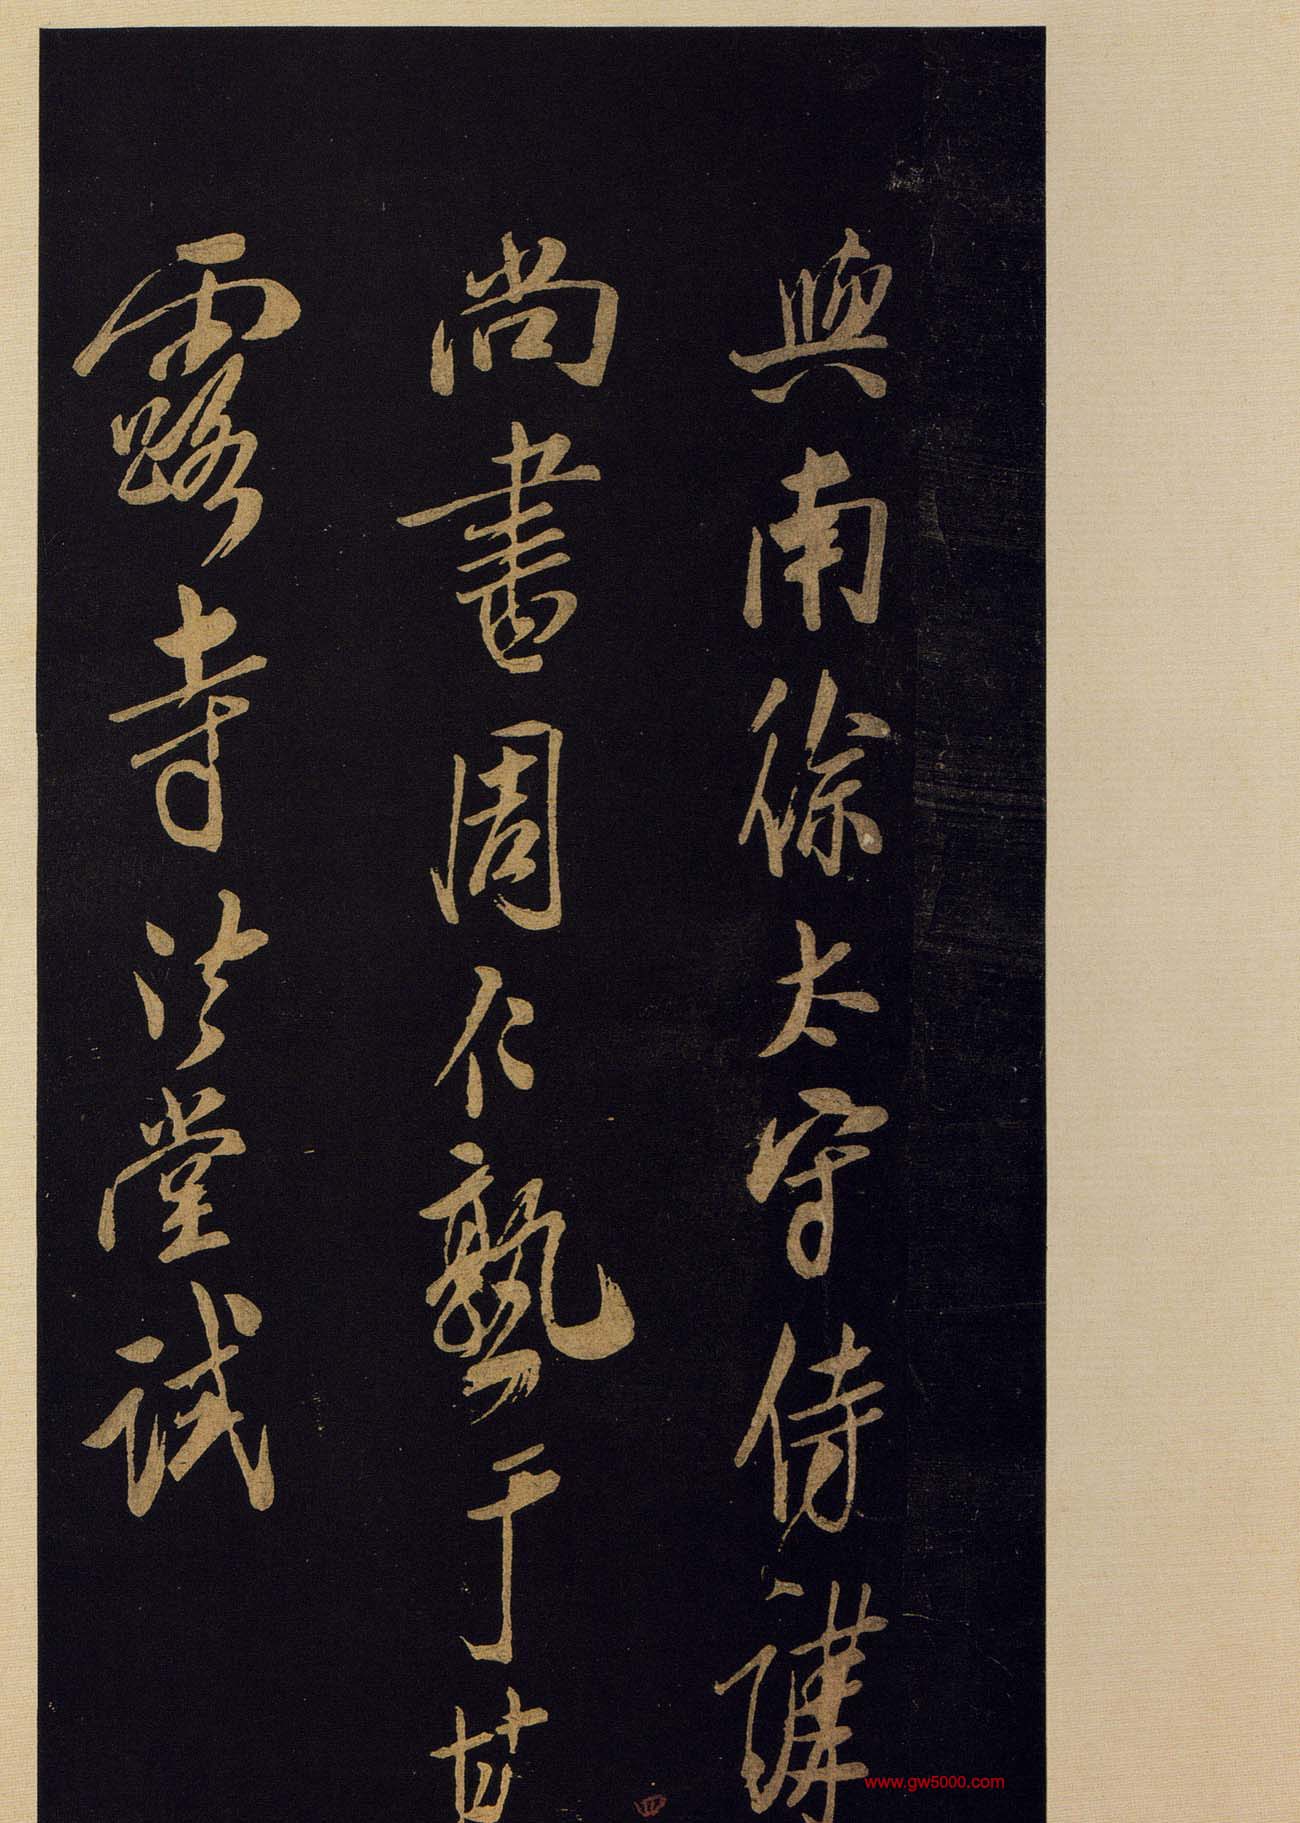 與南徐太守侍講
尚書周仁熟于甘
露寺法堂試
www.gw5000.com